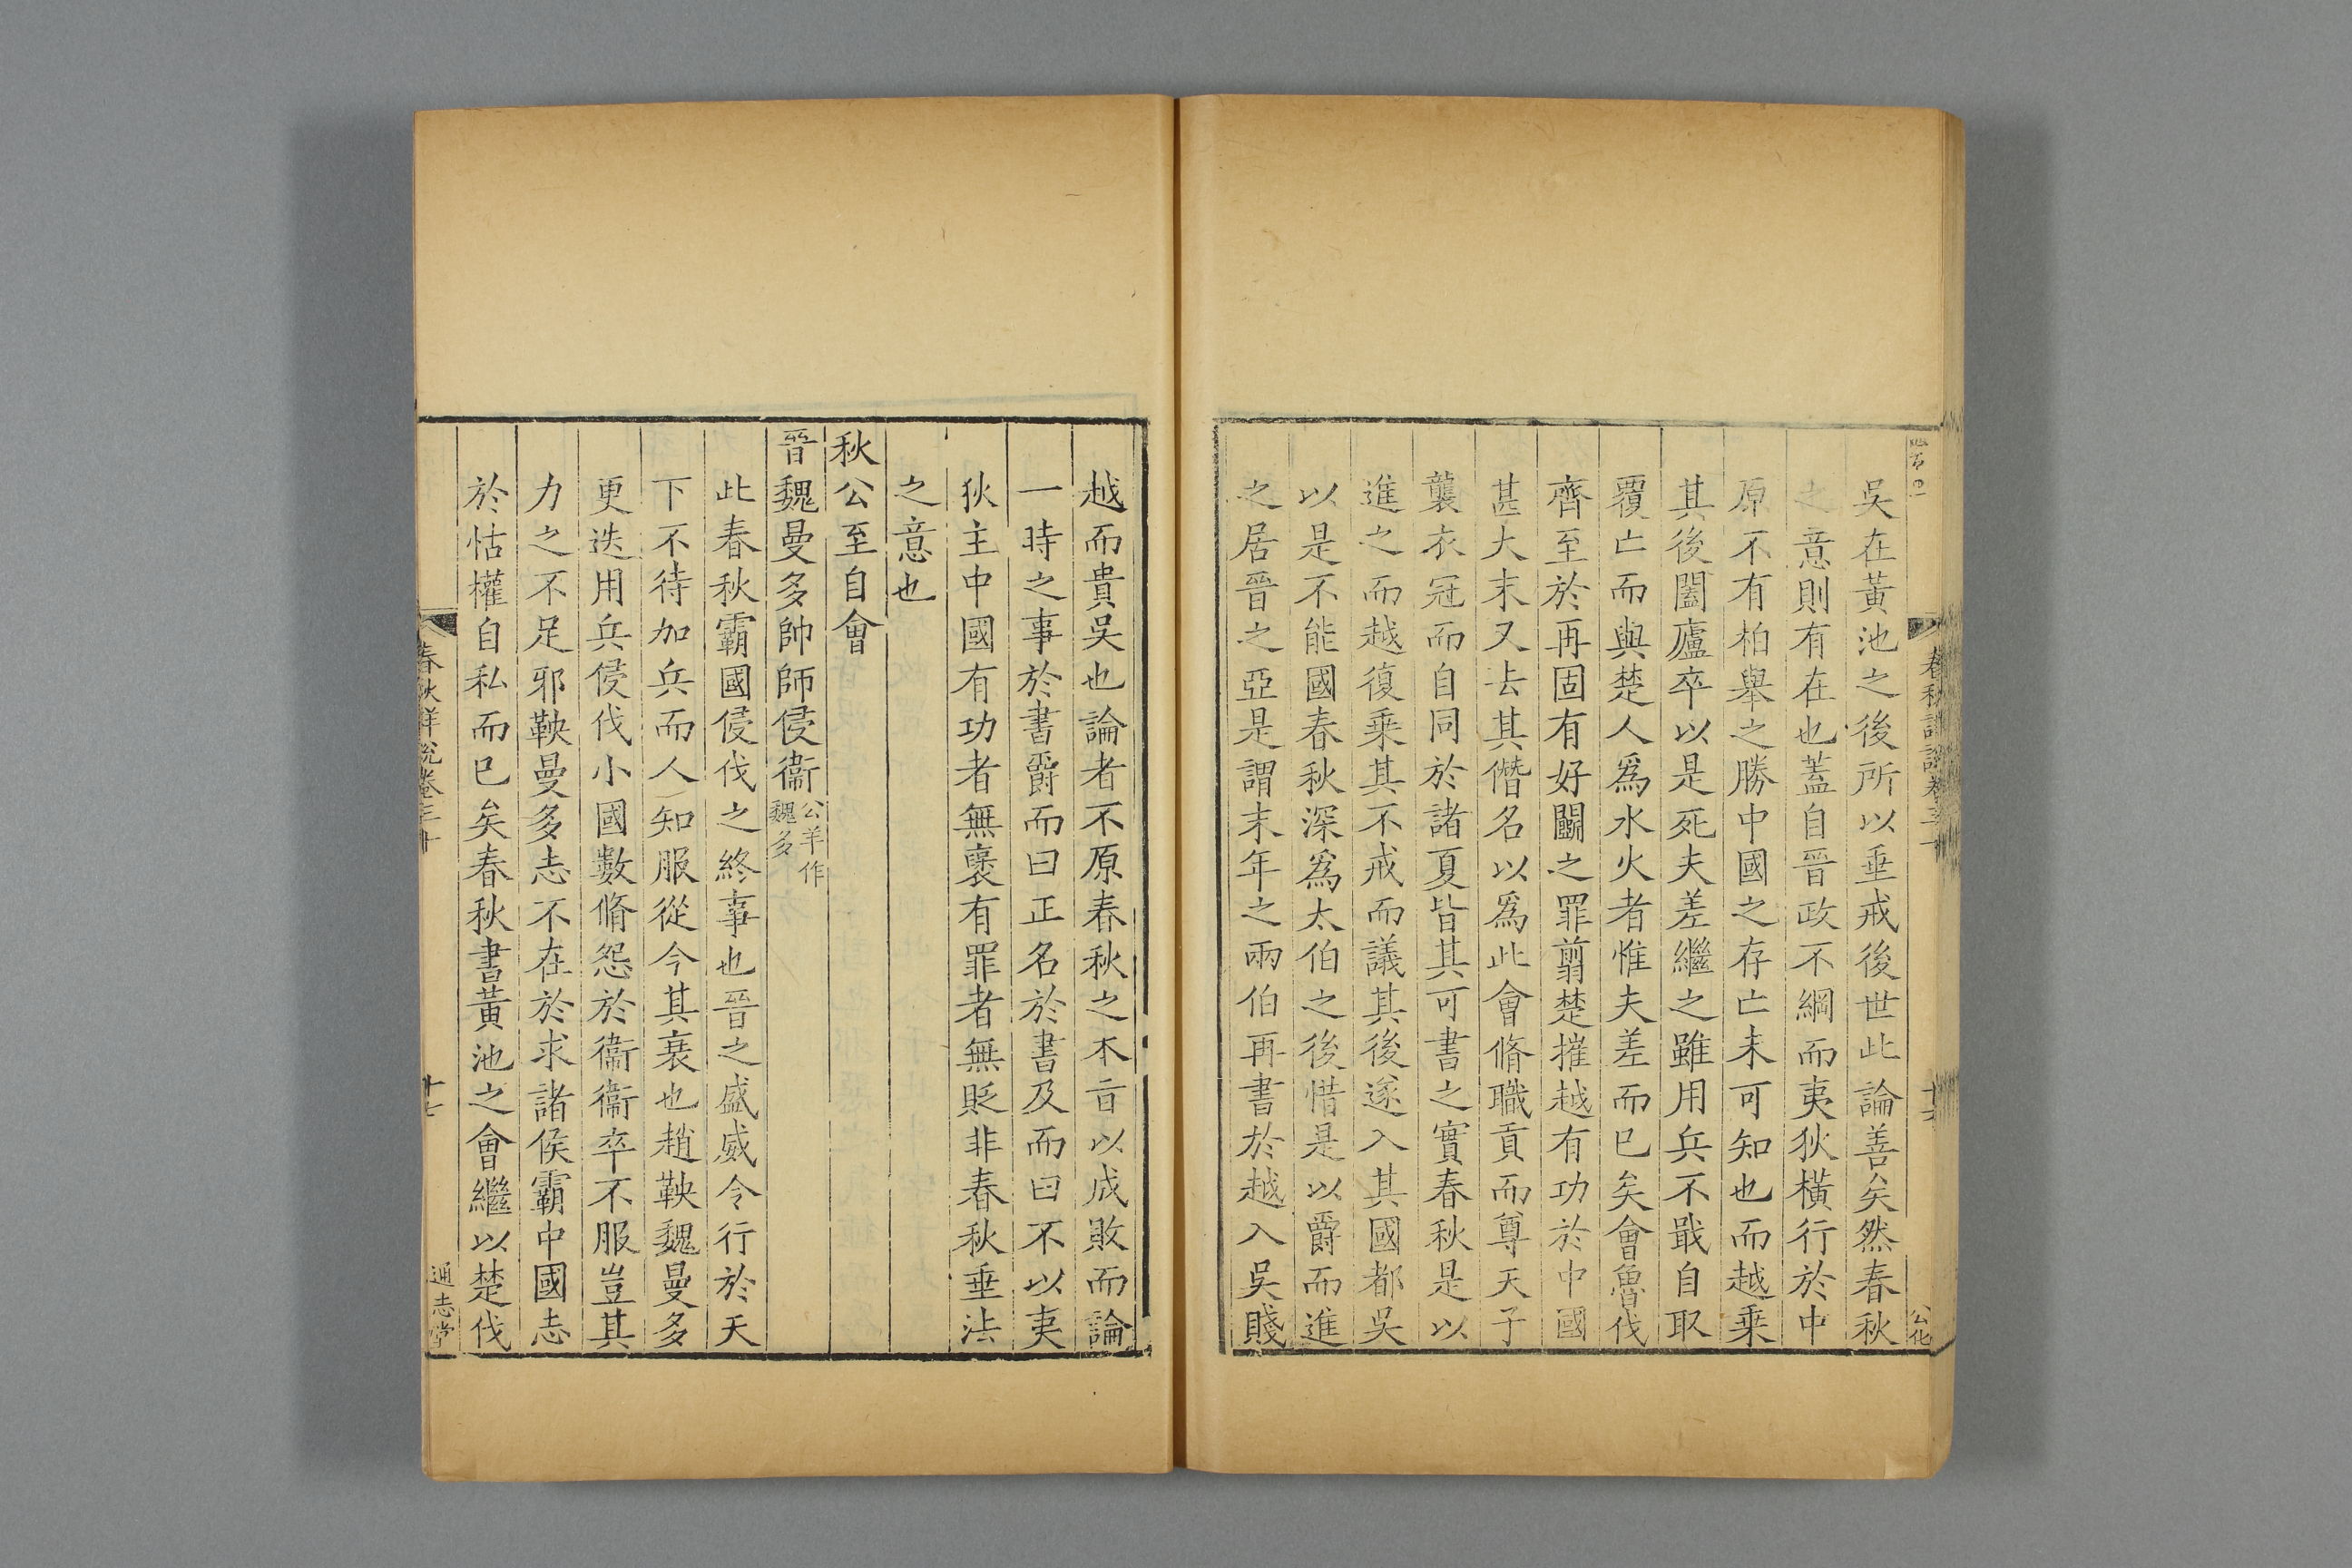 吳在黃池之後所以垂戒後世此論善矣然春秋
之意則有在也蓋自晉政不綱而夷狄橫行於中
原不有柏舉之勝中國之存亡未可知也而越乘
其後闔廬卒以是死夫差繼之雖用兵不戢自取
覆亡而與楚人爲水火者惟夫差而已矣會魯伐
齊至於再固有好鬭之罪翦楚摧越有功於中國
甚大末又去其僭名以爲此會脩職貢而尊天子
襲衣冠而自同於諸夏皆其可書之實春秋是以
進之而越復乘其不戒而議其後遂入其國都吳
以是不能國春秋深爲太伯之後惜是以爵而進
之居晉之亞是謂末年之兩伯再書於越入吳賤
越而貴吳也論者不原春秋之本旨以成敗而論
一時之事於書爵而曰正名於書及而曰不以夷
狄主中國有功者無褒有罪者無貶非春秋垂法
之意也
秋公至自會
晉魏曼多帥師侵衞公羊作
魏多
此春秋霸國侵伐之終事也晉之盛威令行於天
下不待加兵而人知服從今其衰也趙鞅魏曼多
更迭用兵侵伐小國數脩怨於衞衞卒不服豈其
力之不足邪鞅曼多志不在於求諸侯霸中國志
於怙權自私而已矣春秋書黃池之會繼以楚伐
春秋詳說卷三十
十七
通志堂